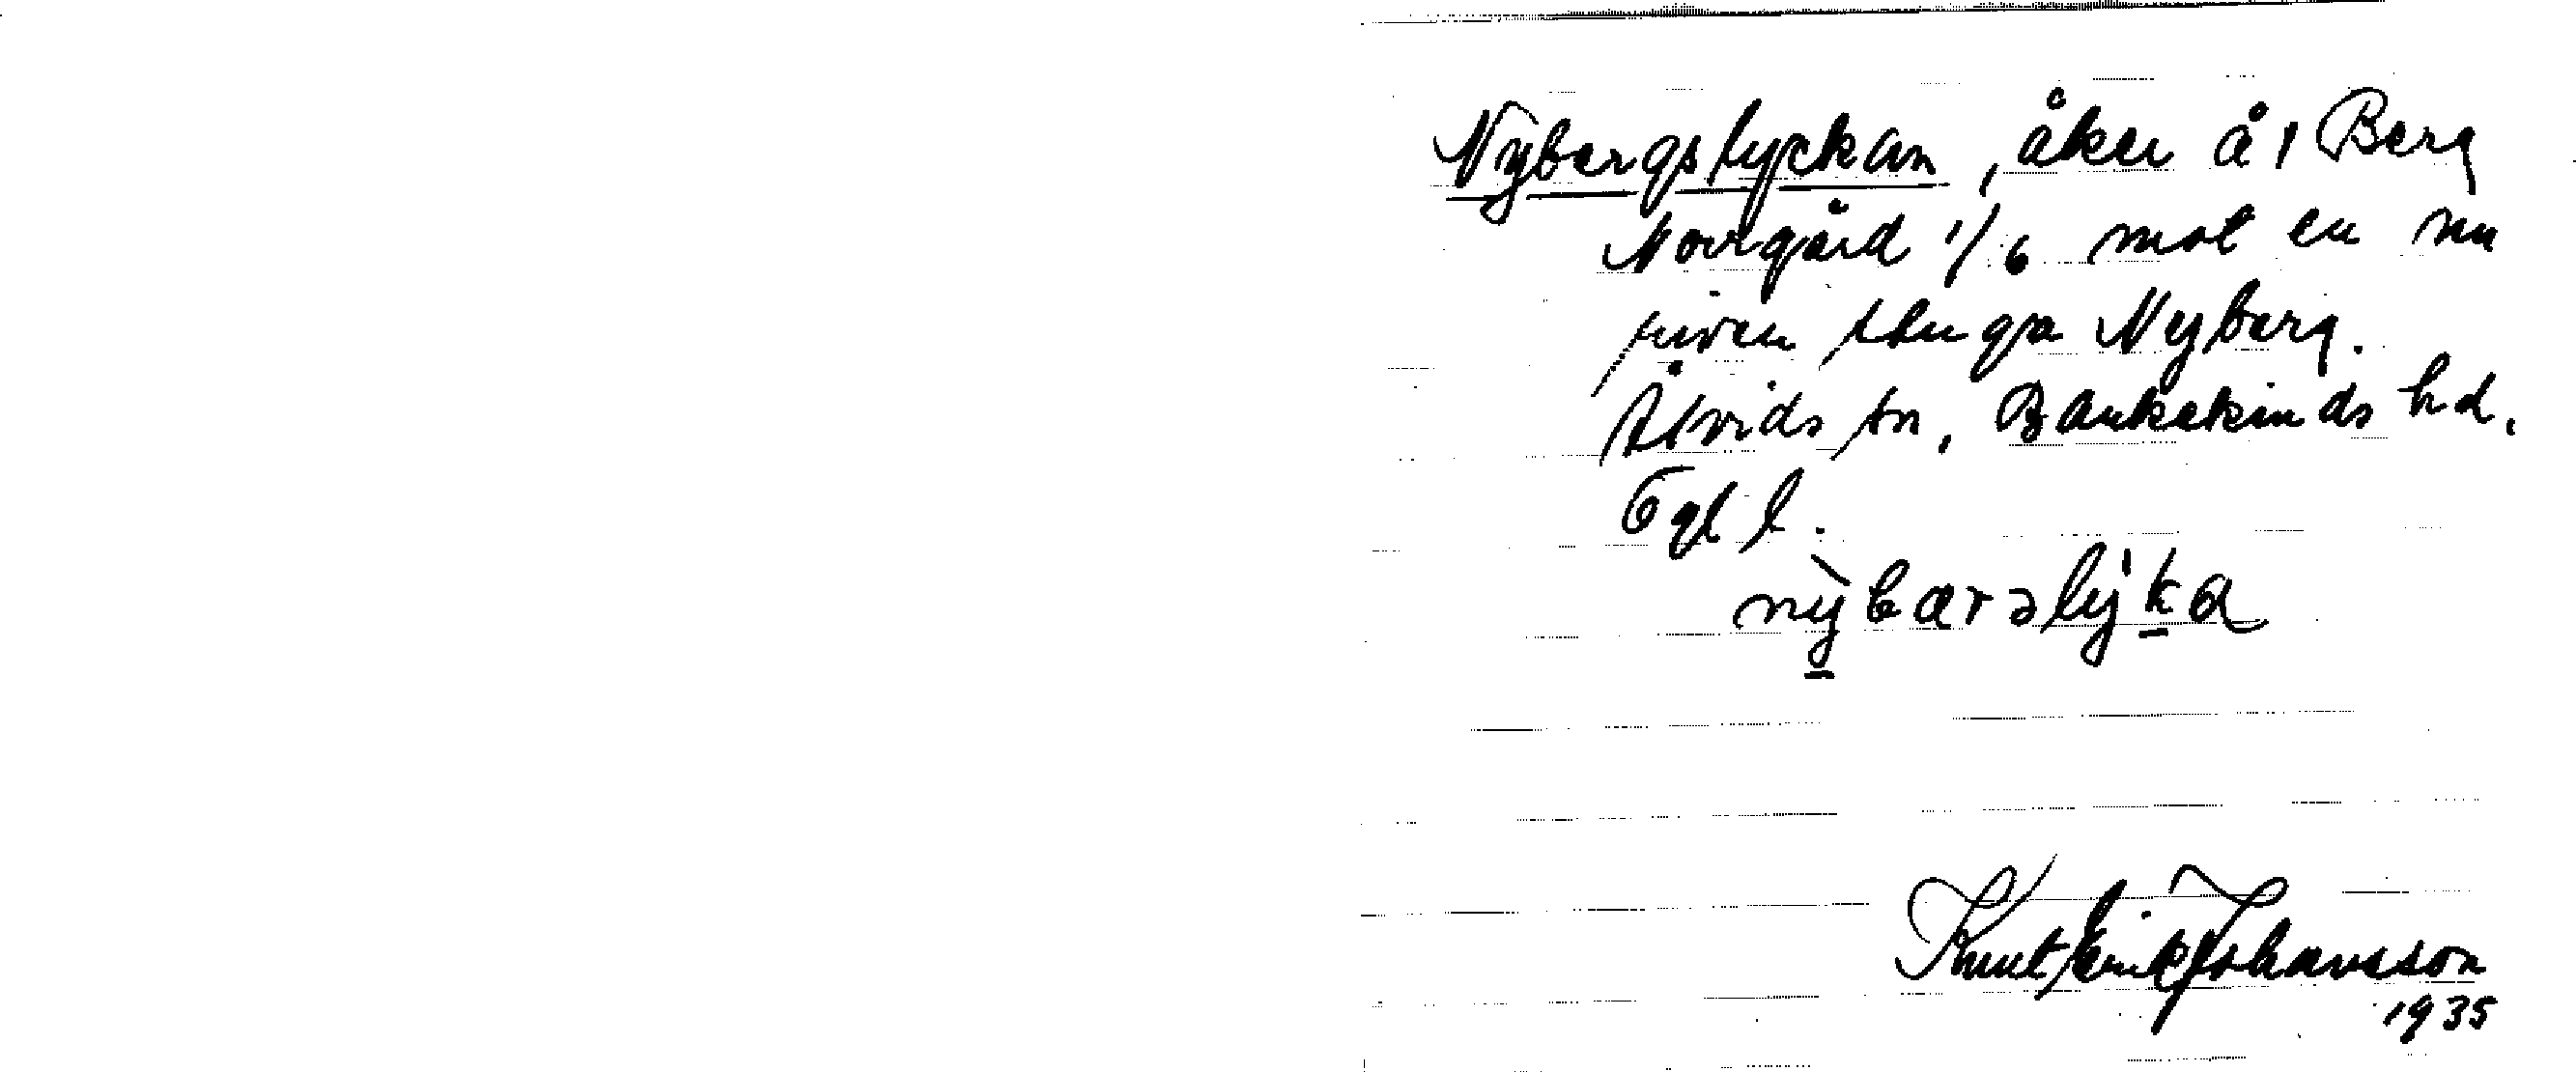 Nybergslyckan, åker å 1 Berg
Norrgård 1/6 mot en nu
riven stuga Nyberg.
Åtvids sn, Bankekinds hd.
Ögtl.
nỳbærslỳka
Knut Erik Johansson
1935